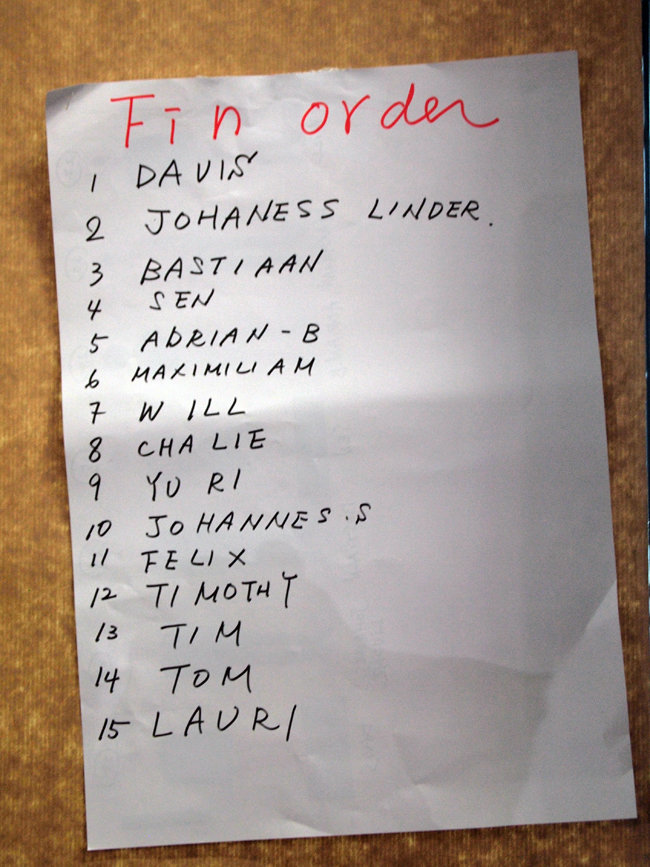 Fin order
1 DAVIS
2 JOHANESS LINDER.
3 BASTIAAN
4 SEN
5 ADRIAN-B
6 MAXIMILIAM
7 WILL
8 CHALIE
9 YURI
10 JOHANNES.S
11 FELIX
12 TIMOTHY
13 TIM
14 TOM
15 LAURI